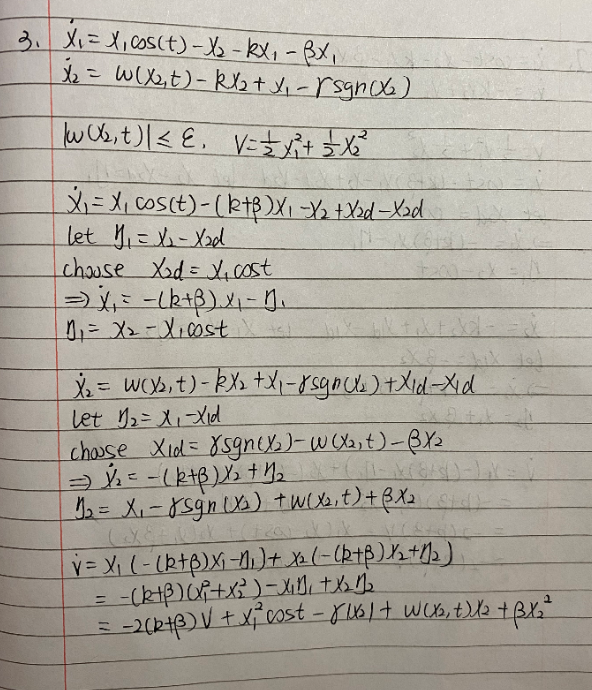 3. ẋ₁ = x₁cos(t) - x₂ - kx₁ - βx₁
ẋ₂ = w(x₂,t) - kx₂ + x₁ - γsgn(x₂)
|w(x₂,t)| ≤ ε. V = ½x₁² + ½x₂²
ẋ₁ = x₁cos(t) - (k+β)x₁ - x₂ + x₂d - x₂d
let η₁ = x₂ - x₂d
choose x₂d = x₁cost
⇒ ẋ₁ = -(k+β)x₁ - η₁
η₁ = x₂ - x₁cost
ẋ₂ = w(x₂,t) - kx₂ + x₁ - γsgn(x₂) + x₁d - x₁d
let η₂ = x₁ - x₁d
choose x₁d = γsgn(x₂) - w(x₂,t) - βx₂
⇒ ẋ₂ = -(k+β)x₂ + η₂
η₂ = x₁ - γsgn(x₂) + w(x₂,t) + βx₂
v̇ = x₁(-(k+β)x₁ - η₁) + x₂(-(k+β)x₂ + η₂)
= -(k+β)(x₁² + x₂²) - x₁η₁ + x₂η₂
= -2(k+β)V + x₁²cost - γ|x₂| + w(x₂,t)x₂ + βx₂²